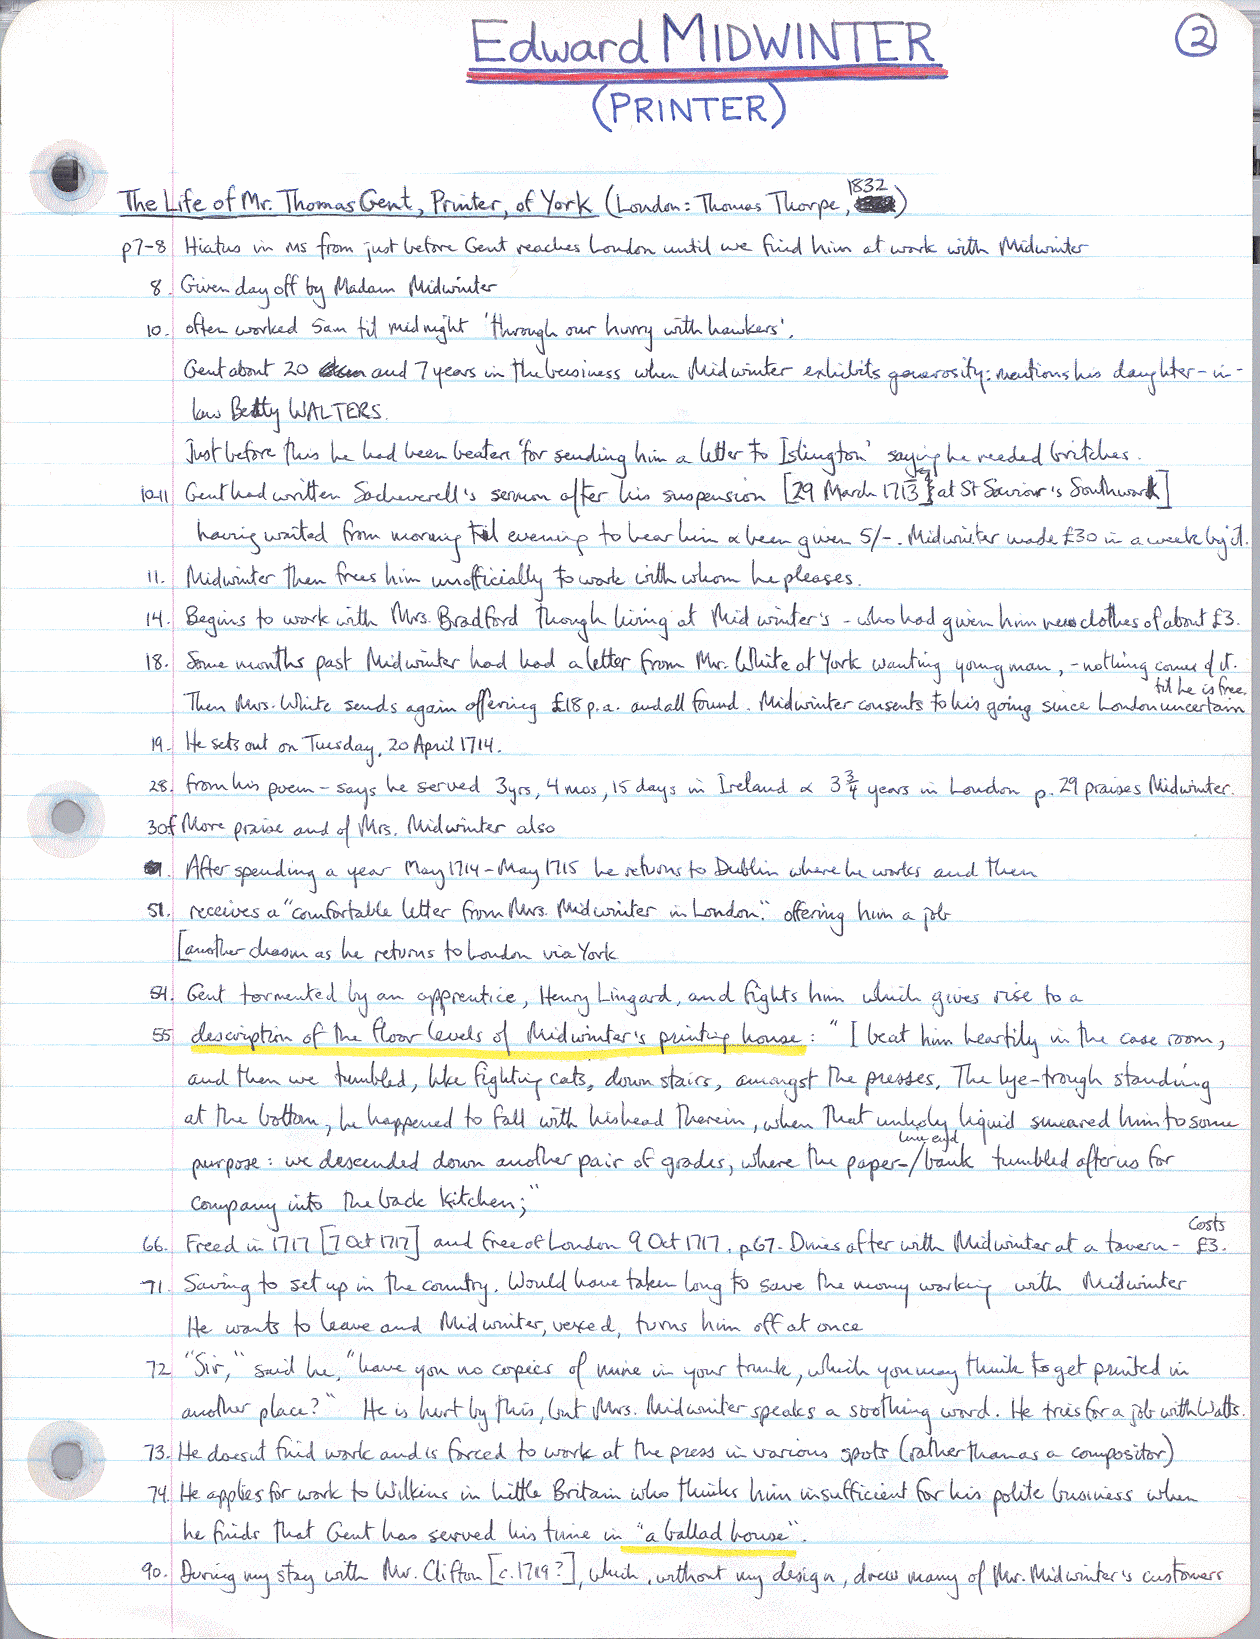 Edward MIDWINTER
2
(PRINTER)
The Life of Mr. Thomas Gent, Printer, of York (London: Thomas Thorpe, 1832)
p7-8 Hiatus in ms from just before Gent reaches London until we find him at work with Midwinter
8. Given day off by Madam Midwinter
10. often worked 5am til midnight 'through our hurry with hawkers'.
Gent about 20 and 7 years in the business when Midwinter exhibits generosity: mentions his daughter-in-
law Betty WALTERS.
Just before this he had been beaten 'for sending him a letter to Islington' saying he needed britches.
10-11 Gent had written Sacheverell's sermon after his suspension [29 March 1713 at St Saviour's Southwark]
having waited from morning til evening to hear him & been given 5/-. Midwinter made £30 in a week by it.
11. Midwinter then frees him unofficially to work with whom he pleases.
14. Begins to work with Mrs. Bradford though living at Midwinter's - who had given him new clothes of about £3.
18. Some months past Midwinter had had a letter from Mr. White at York wanting young man, - nothing comes of it.
til he is free.
Then Mrs. White sends again offering £18 p.a. and all found. Midwinter consents to his going since London uncertain
19. He sets out on Tuesday, 20 April 1714.
28. from his poem - says he served 3yrs, 4 mos, 15 days in Ireland & 3 3/4 years in London p. 29 praises Midwinter.
30f More praise and of Mrs. Midwinter also
After spending a year May 1714 - May 1715 he returns to Dublin where he works and then
51. receives a "comfortable letter from Mrs. Midwinter in London." offering him a job
[another chasm as he returns to London via York
54. Gent tormented by an apprentice, Henry Lingard, and fights him which gives rise to a
55 description of the floor levels of Midwinter's printing house: "I beat him heartily in the case room,
and then we tumbled, like fighting cats, down stairs, amongst the presses. The lye-trough standing
at the bottom, he happened to fall with his head therein, when that unholy liquid smeared him to some
purpose: we descended down another pair of grades, where the paper-/bank tumbled after us for
company into the back kitchen;"
Costs
66. Freed in 1717 [7 Oct 1717] and free of London 9 Oct 1717. p67. Dines after with Midwinter at a tavern - £3.
71. Saving to set up in the country. Would have taken long to save the money working with Midwinter
He wants to leave and Midwinter, vexed, turns him off at once
72 "Sir," said he, "have you no copies of mine in your trunk, which you may think to get printed in
another place?" He is hurt by this, but Mrs. Midwinter speaks a soothing word. He tries for a job with Watts.
73. He doesnt find work and is forced to work at the press in various spots (rather than as a compositor)
74. He applies for work to Wilkins in Little Britain who thinks him insufficient for his polite business when
he finds that Gent has served his time in "a ballad house".
90. During my stay with Mr. Clifton [c.1719?], which, without my design, drew many of Mr. Midwinter's customers